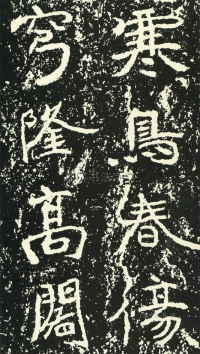 寒鳥春傷
穹隆高闊